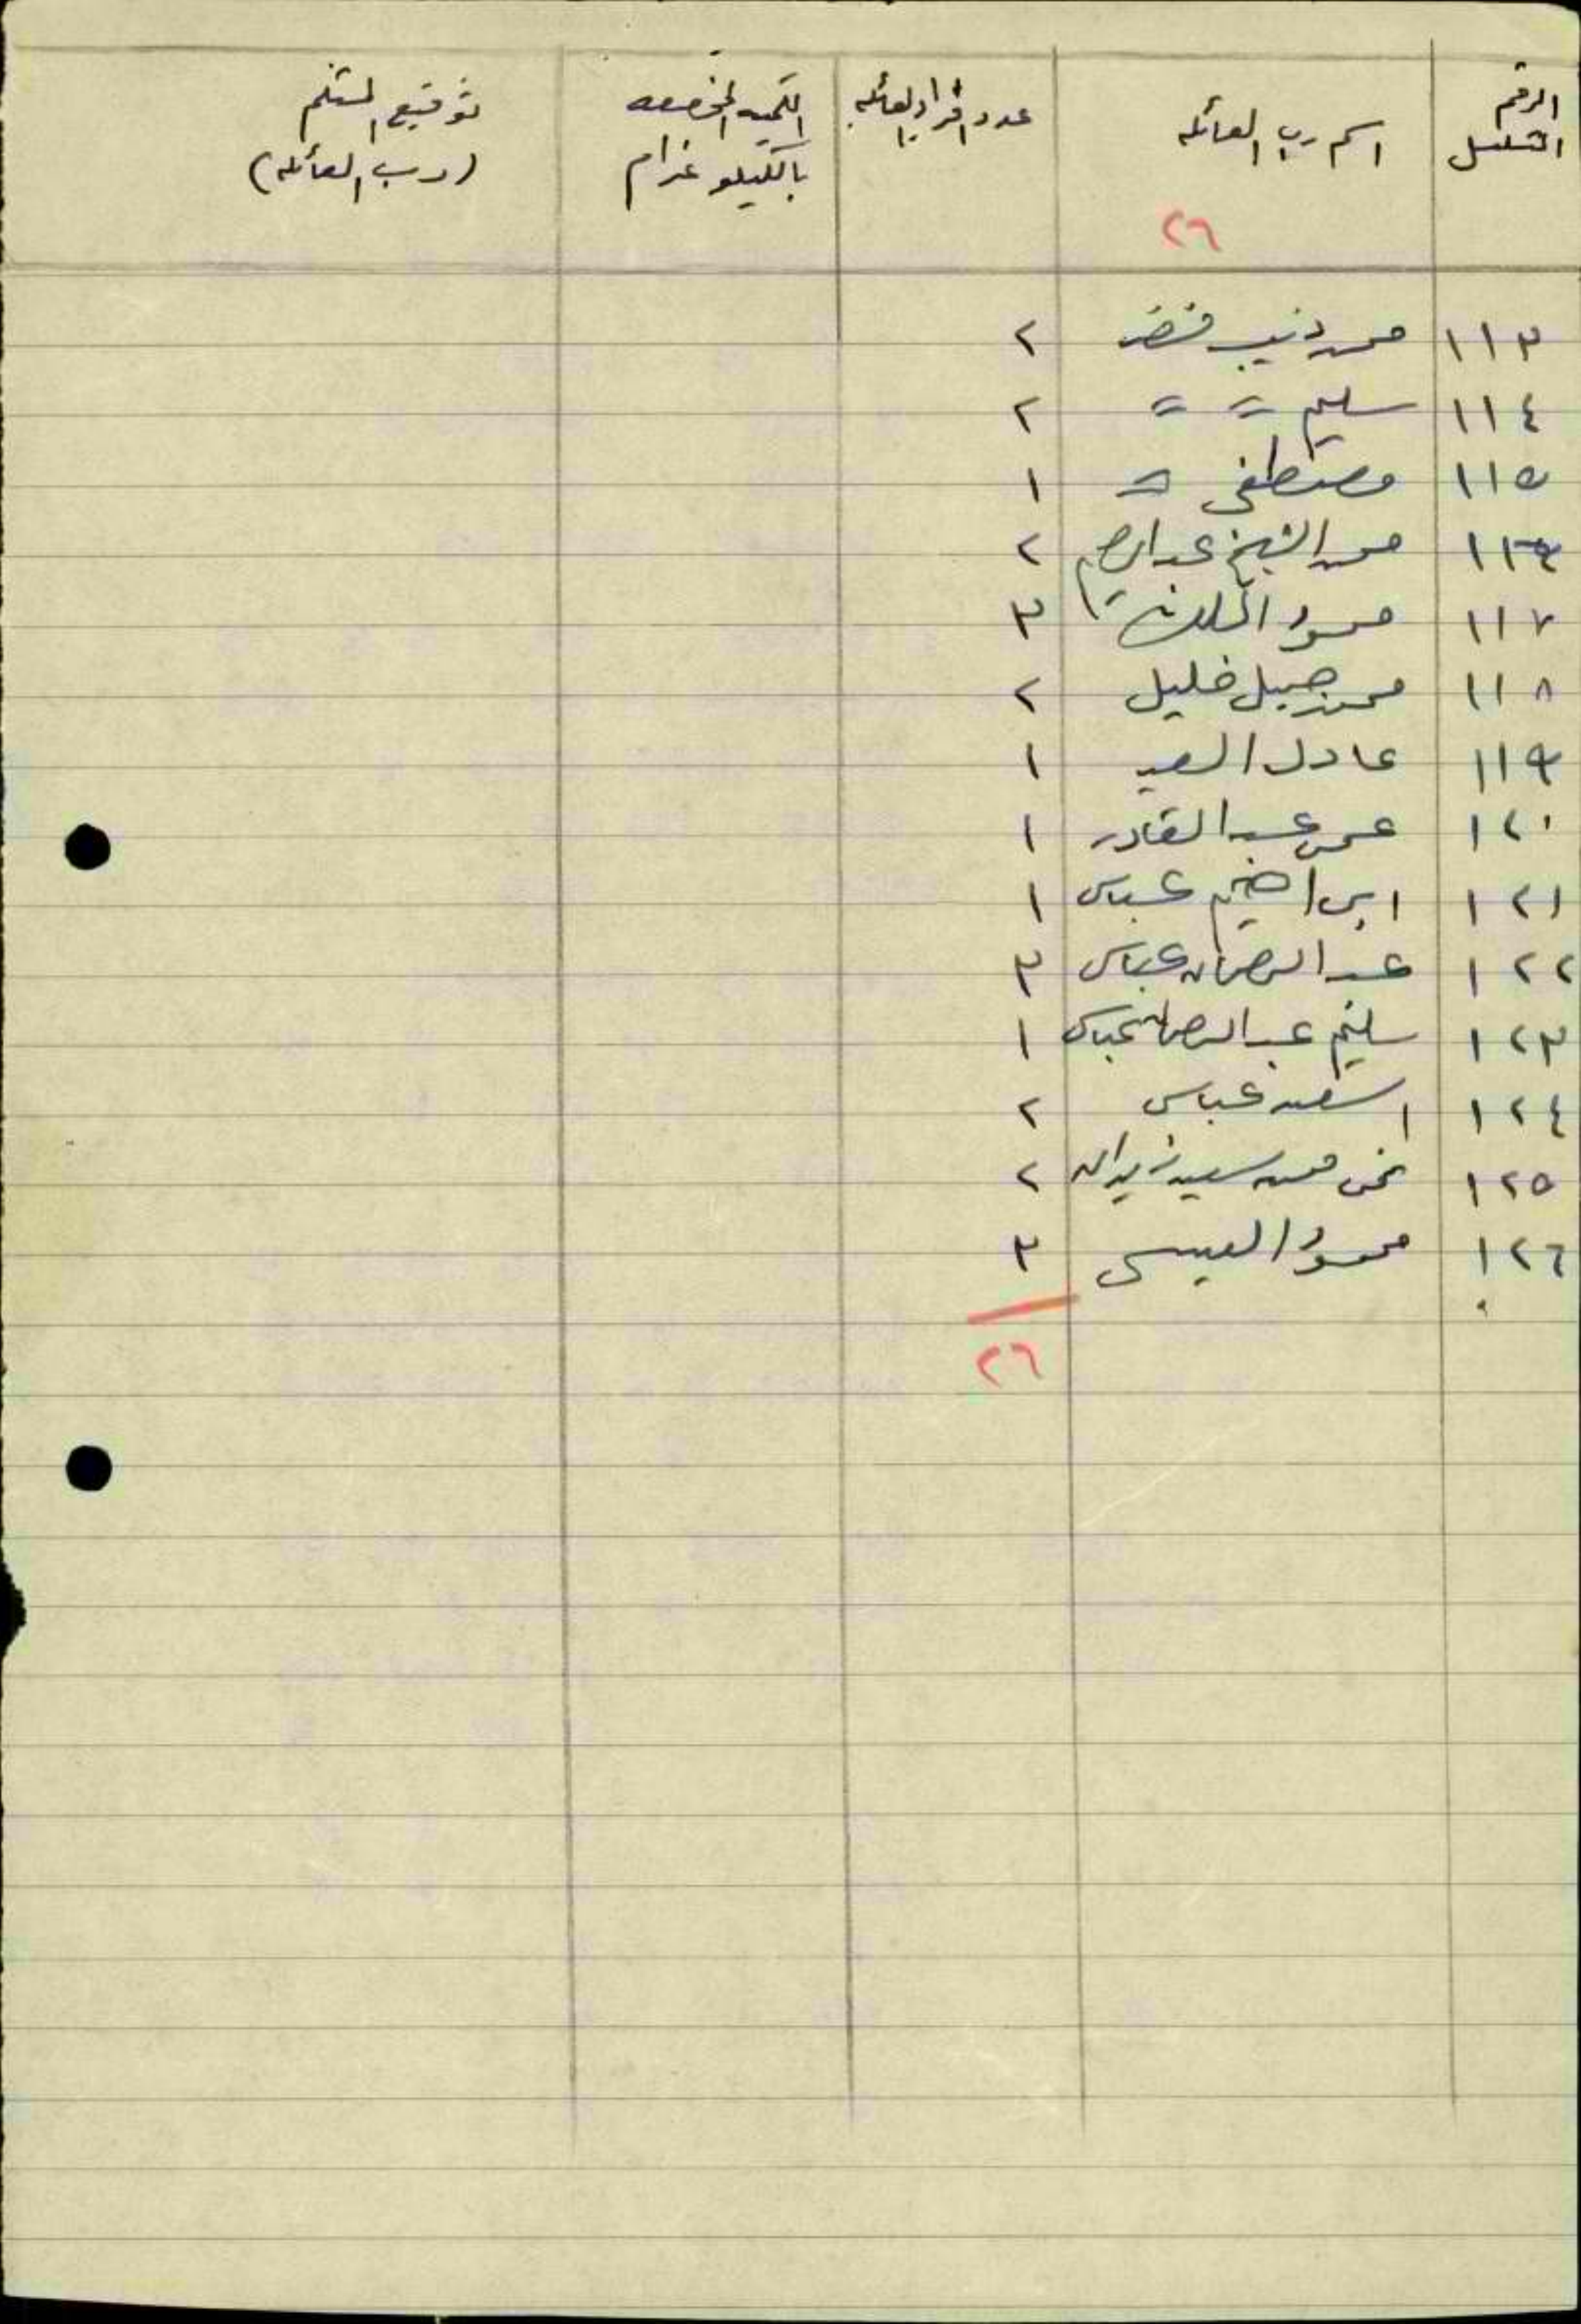 الرقم المتسلسل | اسم رب العائله | عدد افراد العائله | الكميه المخصصه بالكيلو غرام | توقيع المستلم (رب العائله)
٢٦
١١٣ محمد ذيب خضر ٢
١١٤ سليم = = ٢
١١٥ مصطفى = ١
١١٦ محمد الشيخ عبد الرحيم ٢
١١٧ محمود ٣
١١٨ محمد جميل خليل ٢
١١٩ عادل السعيد ١
١٢٠ عمر عبد القادر ١
١٢١ ابراهيم عباس ١
١٢٢ عبد الرحمان عباس ٣
١٢٣ سليم عبد الرحمان عباس ١
١٢٤ اسعد عباس ٢
١٢٥ محمد سعيد زيدان ٢
١٢٦ محمود العيسى ٣
٢٦